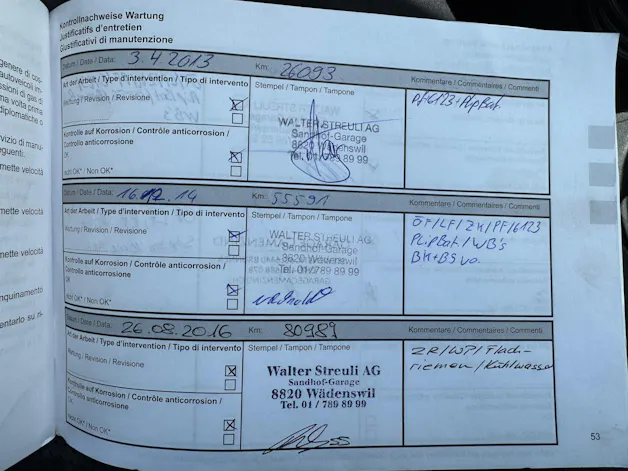 Kontrollnachweise Wartung
Justificatifs d'entretien
Giustificativi di manutenzione
genere di cop-
autoveicoli im-
ssioni di gas di
ma volta prima
diplomatiche o
vizio di manu-
eguenti:
mette velocità
mette velocità
mette velocità
nquinamentti
entarlo su ri-
Datum / Date / Data: 3.4.2013 Km: 26093
Art der Arbeit / Type d'intervention / Tipo di intervento
Stempel / Tampon / Tampone
Kommentare / Commentaires / Commenti
Wartung / Revision / Revisione
Kontrolle auf Korrosion / Contrôle anticorrosion /
Controllo anticorrosione
OK
nicht OK* / Non OK*
WALTER STREULI AG
Sandhof-Garage
8820 Wädenswil
Tel. 01/789 89 99
Pf6123+PlipBat
Datum / Date / Data: 16.12.14 Km: 55591
Art der Arbeit / Type d'intervention / Tipo di intervento
Stempel / Tampon / Tampone
Kommentare / Commentaires / Commenti
Wartung / Revision / Revisione
Kontrolle auf Korrosion / Contrôle anticorrosion /
Controllo anticorrosione
OK
nicht OK* / Non OK*
WALTER STREULI AG
Sandhof-Garage
8820 Wädenswil
Tel. 01/789 89 99
ÖF/LF/ZK/PF/6123
PlipBat/WB's
BK+BS vo.
Datum / Date / Data: 26.08.2016 Km: 80989
Art der Arbeit / Type d'intervention / Tipo di intervento
Stempel / Tampon / Tampone
Kommentare / Commentaires / Commenti
Wartung / Revision / Revisione
Kontrolle auf Korrosion / Contrôle anticorrosion /
Controllo anticorrosione
OK
nicht OK* / Non OK*
Walter Streuli AG
Sandhof-Garage
8820 Wädenswil
Tel. 01 / 789 89 99
ZR/WP/Flach-
riemen/Kühlwasser
53